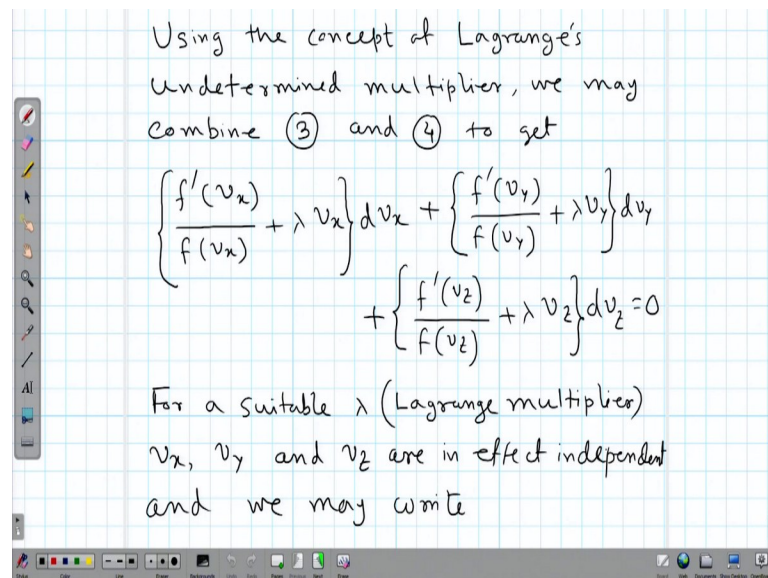 Using the concept of Lagrange's
undetermined multiplier, we may
combine ③ and ④ to get
{f'(υx)/f(υx) + λ υx} dυx + {f'(υy)/f(υy) + λ υy} dυy
+ {f'(υz)/f(υz) + λ υz} dυz = 0
For a suitable λ (Lagrange multiplier)
υx, υy and υz are in effect independent
and we may write